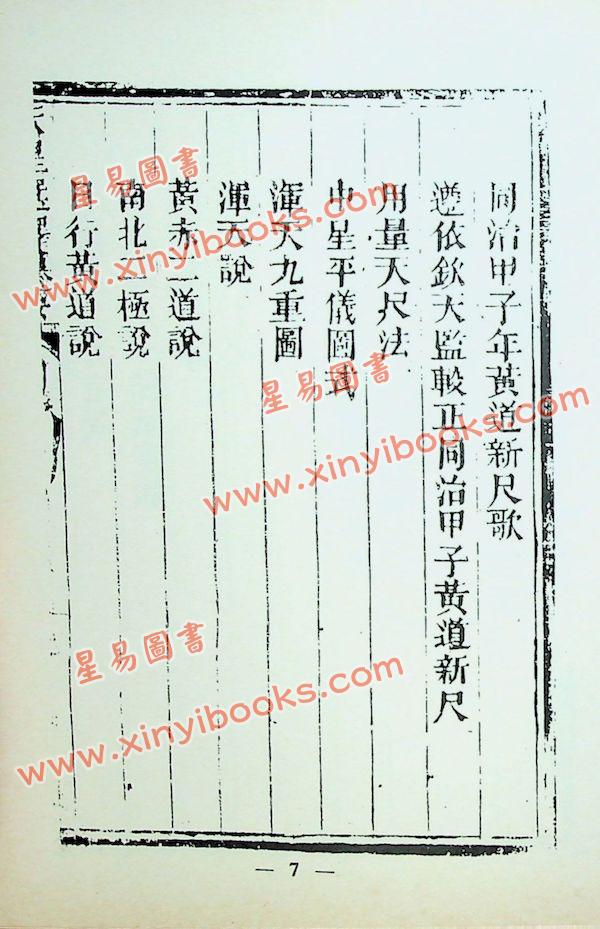 同治甲子年黃道新尺歌
遵依欽天監較正同治甲子黃道新尺
用量天尺法
中星平儀圖式
渾天九重圖
渾天說
黃赤二道說
南北二極說
日行黃道說
星易圖書
www.xinyibooks.com
星易圖書
www.xinyibooks.com
星易圖書
www.xinyibooks.com
— 7 —